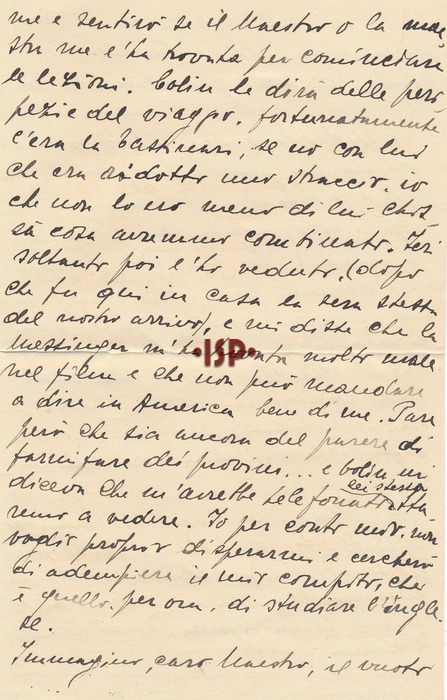 me e sentirò se il Maestro o la mae
stra me l'ha trovata per cominciare
le lezioni. Colin le dirà delle peri
pezie del viaggio. Fortunatamente
c'era la Bastineri, se no con lui
che era ridotto uno straccio, io
che non lo ero meno di lui chissà
cosa avremmo combinato. Ieri
soltanto poi l'ho veduto, (dopo
che fu qui in casa la sera stessa
del nostro arrivo), e mi disse che la
Messinger m'ha molto male
nel film e che non può mandare
a dire in America bene di me. Pare
però che sia ancora del parere di
farmi fare dei provini... e Colin mi
diceva che m'avrebbe lei stessa telefonato
remo a vedere. Io per conto mio, non
voglio proprio disperarmi e cercherò
di adempiere il mio compito, che
è quello, per ora, di studiare l'ingle-
se.
Immagino, caro Maestro, il vuoto
ISP